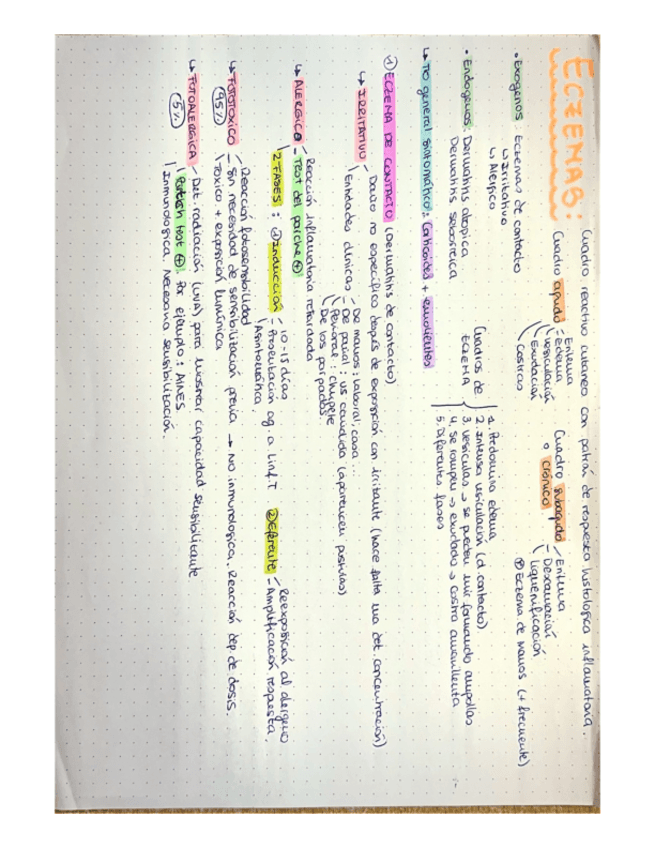 ECZEMAS: Cuadro reactivo cutáneo con patrón de respuesta histológica inflamatoria.
Cuadro agudo: Eritema
edema
vesiculación
Exudación
Costras
Cuadro subagudo o crónico
Eritema
Descamación
Liquenificación
Eczema de manos (+ frecuente)
• Exogenos: Eczemas de contacto
↳ Irritativo
↳ Alergico
• Endogenos: Dermatitis atopica
Dermatitis seborreica
Cuadros de ECZEMA
1. Predomina edema
2. Intensa vesiculación (d. contacto)
3. Vesiculas → se pueden unir formando ampollas
4. se rompen → exudado → costra amarillenta
5. Diferentes fases
↳ Tto general sintomático: Corticoides + emolientes
① ECZEMA DE CONTACTO (Dermatitis de contacto)
↳ IRRITATIVO - Daño no especifico después de exposición con irritante (hace falta una det. concentración)
Entidades clínicas
De manos: laboral, casa...
De pañal: vs candida (aparecen pustulas)
Perioral: chupete
De los parpados.
↳ ALERGICO - Reacción inflamatoria retardada
- Test del parche ⊕
2 FASES: ① Inducción - 10-15 días
- Presentación ag. a linf. T
Asintomática.
② Eferente - Reexposición al alergeno
- Amplificación respuesta.
↳ FOTOTOXICO (95%) - Reacción fotosensibilidad
- Sin necesidad de sensibilización previa → No inmunologica. Reacción dep de dosis.
Toxico + exposición lumínica
↳ FOTOALERGICA (5%) - Det. radiación (UVA) para mostrar capacidad sensibilizante
Patch test ⊕. Por ejemplo: AINES
Inmunologica. Necesaria sensibilización.